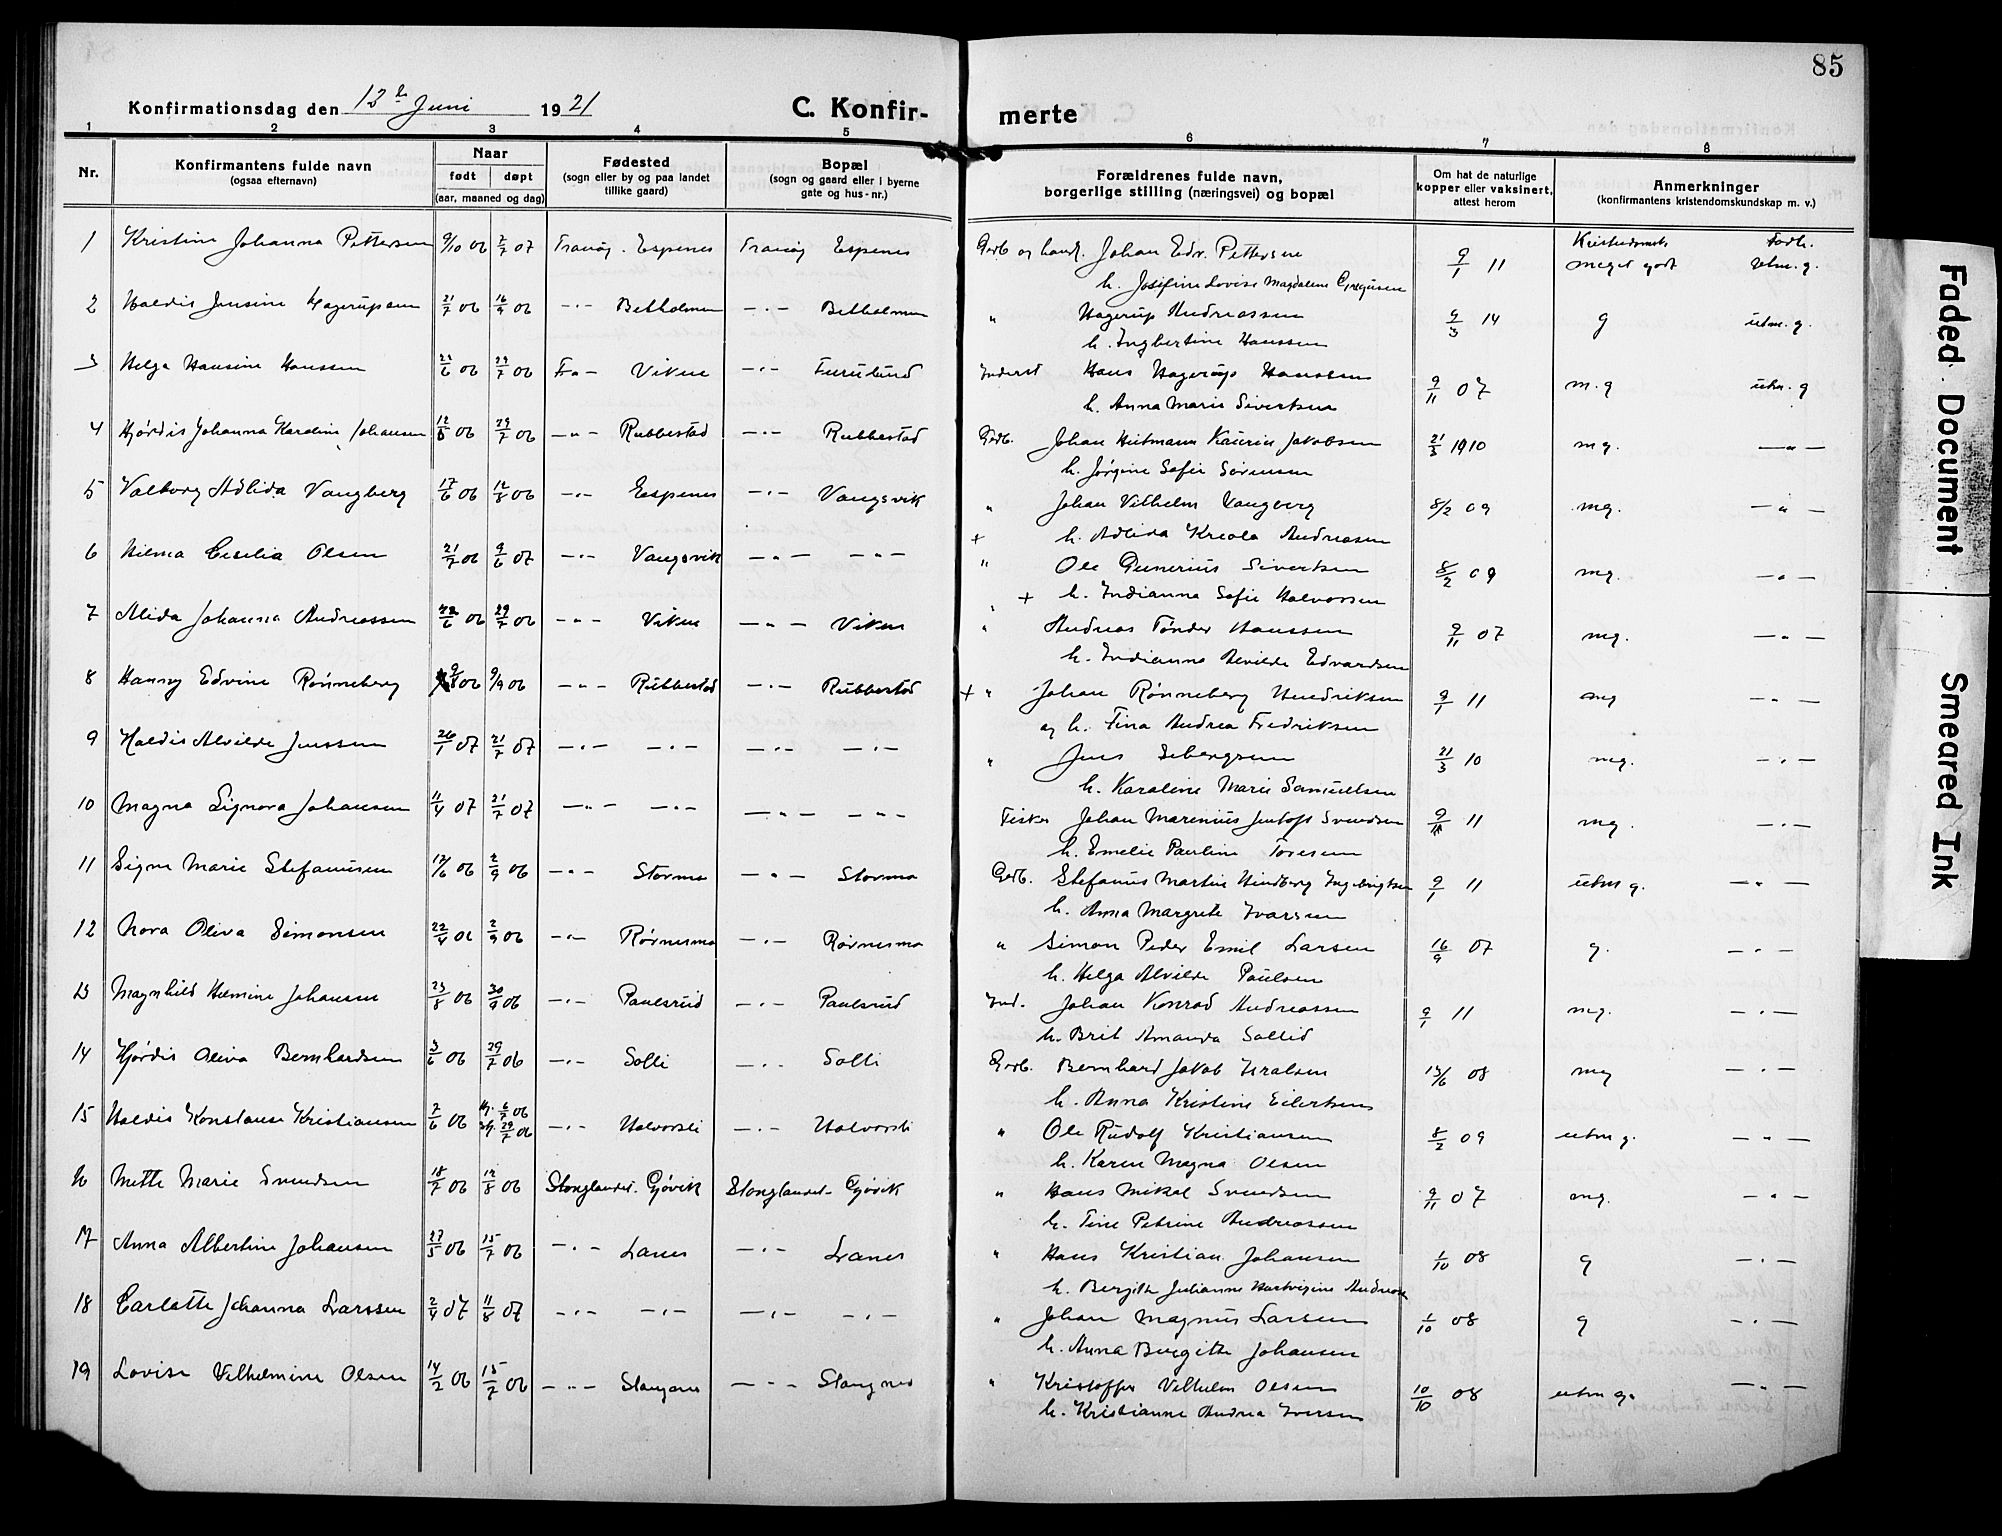 85
Konfirmationsdag den 12 Juni 1921
C. Konfir-
merte
1 2 3 4 5 6 7 8
Nr.
Konfirmantens fulde navn
(ogsaa efternavn)
Naar
født døpt
(aar, maaned og dag)
Fødested
(sogn eller by og paa landet
tillike gaard)
Bopæl
(sogn og gaard eller i byerne
gate og hus-nr.)
Forældrenes fulde navn,
borgerlige stilling (næringsvei) og bopæl
Om hat de naturlige
kopper eller vaksinert,
attest herom
Anmerkninger
(konfirmantens kristendomskundskap m. v.)
1 Kristine Johanna Pettersen 9/10 06 2/2 07 Tranøy. Espenes Tranøy Espenes Johan Edv. Pettersen 9/1 11 meget godt utm. g.
h. Josefine Lovise Magdalene
2 Haldis Jensine Hagerupsen 21/7 06 16/9 06 —"— —"— " Hagerup Andreassen 9/3 14 g utm. g.
h. Ingbertine Hanssen
3 Helga Hansine Hanssen 29/7 06 Viken —"— Furulund Hans Hagerup Hanssen 9/11 07 m. g utm. g
h. Anna Marie Sivertsen
4 Hjördis Johanna Karoline Johansen 29/7 06 —"— Rubbestad —"— Rubbestad Grdb. Johan Jakobsen 21/3 1910 mg. —"—
h. Jørgine Sofie Sørensen
5 Valborg Adlida Vangberg 17/6 06 12/8 06 —"— Espenes —"— Vangsvik " Johan Vilhelm Vangberg 8/2 09 mg. —"—
+ h. Adlida Andreasen
6 Hilma Cesilia Olsen 9/6 07 —"— Vangsvik —"— —"— " Ole Gunerius Sivertsen 8/2 09 mg. —"—
+ h. Indianna Sofie Halvorsen
7 Alida Johanna Andreassen 29/7 06 —"— Viken —"— Viken " Andreas Tønder Hanssen 9/11 07 mg. —"—
h. Indianna Alvilde Edvardsen
8 Hanny Edvine Rønneberg 9/9 06 —"— Rubbestad —"— Rubbestad + " Johan Rønneberg Hendriksen 9/1 11 mg —"—
og h. Fina Andrea Fredriksen
9 Haldis Alvilde Jenssen 26/1 07 21/7 07 —"— —"— —"— —"— " Jens 21/3 10 mg. —"—
h. Karoline Marie Samuelsen
10 Magna Signora Johansen 11/4 07 21/7 07 —"— —"— —"— —"— Fisker Johan Marenius Jentoft Svendsen 11 mg. —"—
h. Emelie Pauline Toresen
11 Signe Marie Stefanusen 12/6 06 2/9 06 —"— Stormo —"— Stormo Grdb. Stefanus Martin Hindberg Ingebrigtsen 9/1 11 utm g. —"—
h. Anna Margrete Ivarsen
12 Nora Oliva Simonsen 22/4 06 2/9 06 —"— Rørnesmo —"— Rørnesmo " Simon Peder Emil Larsen 16/9 07 g. —"—
h. Helga Alvilde Paulsen
13 Magnhild Helmine Johansen 23/8 06 30/9 06 —"— Paulsrud —"— Paulsrud Ind. Johan Konrad Andreassen 9/1 11 mg. —"—
h. Brit Amanda Sollid
14 Hjördis Oliva Bernhardsen 3/6 06 29/7 06 —"— Solli —"— Solli Grdb. Bernhard Jakob 13/6 08 mg —"—
h. Anna Kristine Eilertsen
15 Haldis Konstanse Kristiansen 7/6 06 29/7 06 —"— Halvorsli —"— Halvorsli " Ole Rudolf Kristiansen 8/2 09 utm g. —"—
h. Karen Magna Olsen
16 Mette Marie Svendsen 18/7 06 12/8 06 Stonglandet. Gjövik Stonglandet. Gjövik " Hans Mikal Svendsen 9/11 07 mg. —"—
h. Tine Petrine Andreassen
17 Anna Albertine Johansen 27/5 06 15/7 06 —"— Lanes —"— Lanes " Hans Kristian Johansen 1/10 08 g —"—
h. Bergitte Julianne Hartvigine
18 Carlotte Johanna Larssen 2/4 07 11/8 07 —"— —"— —"— —"— " Johan Magnus Larsen 1/10 08 g —"—
h. Anna Bergitte Johansen
19 Lovise Vilhelmine Olsen 14/2 06 15/7 06 —"— Stangnes —"— Stangnes " Kristoffer Vilhelm Olsen 10/10 08 utm g. —"—
h. Kristianne Andrea Iversen
Faded Document Smeared Ink